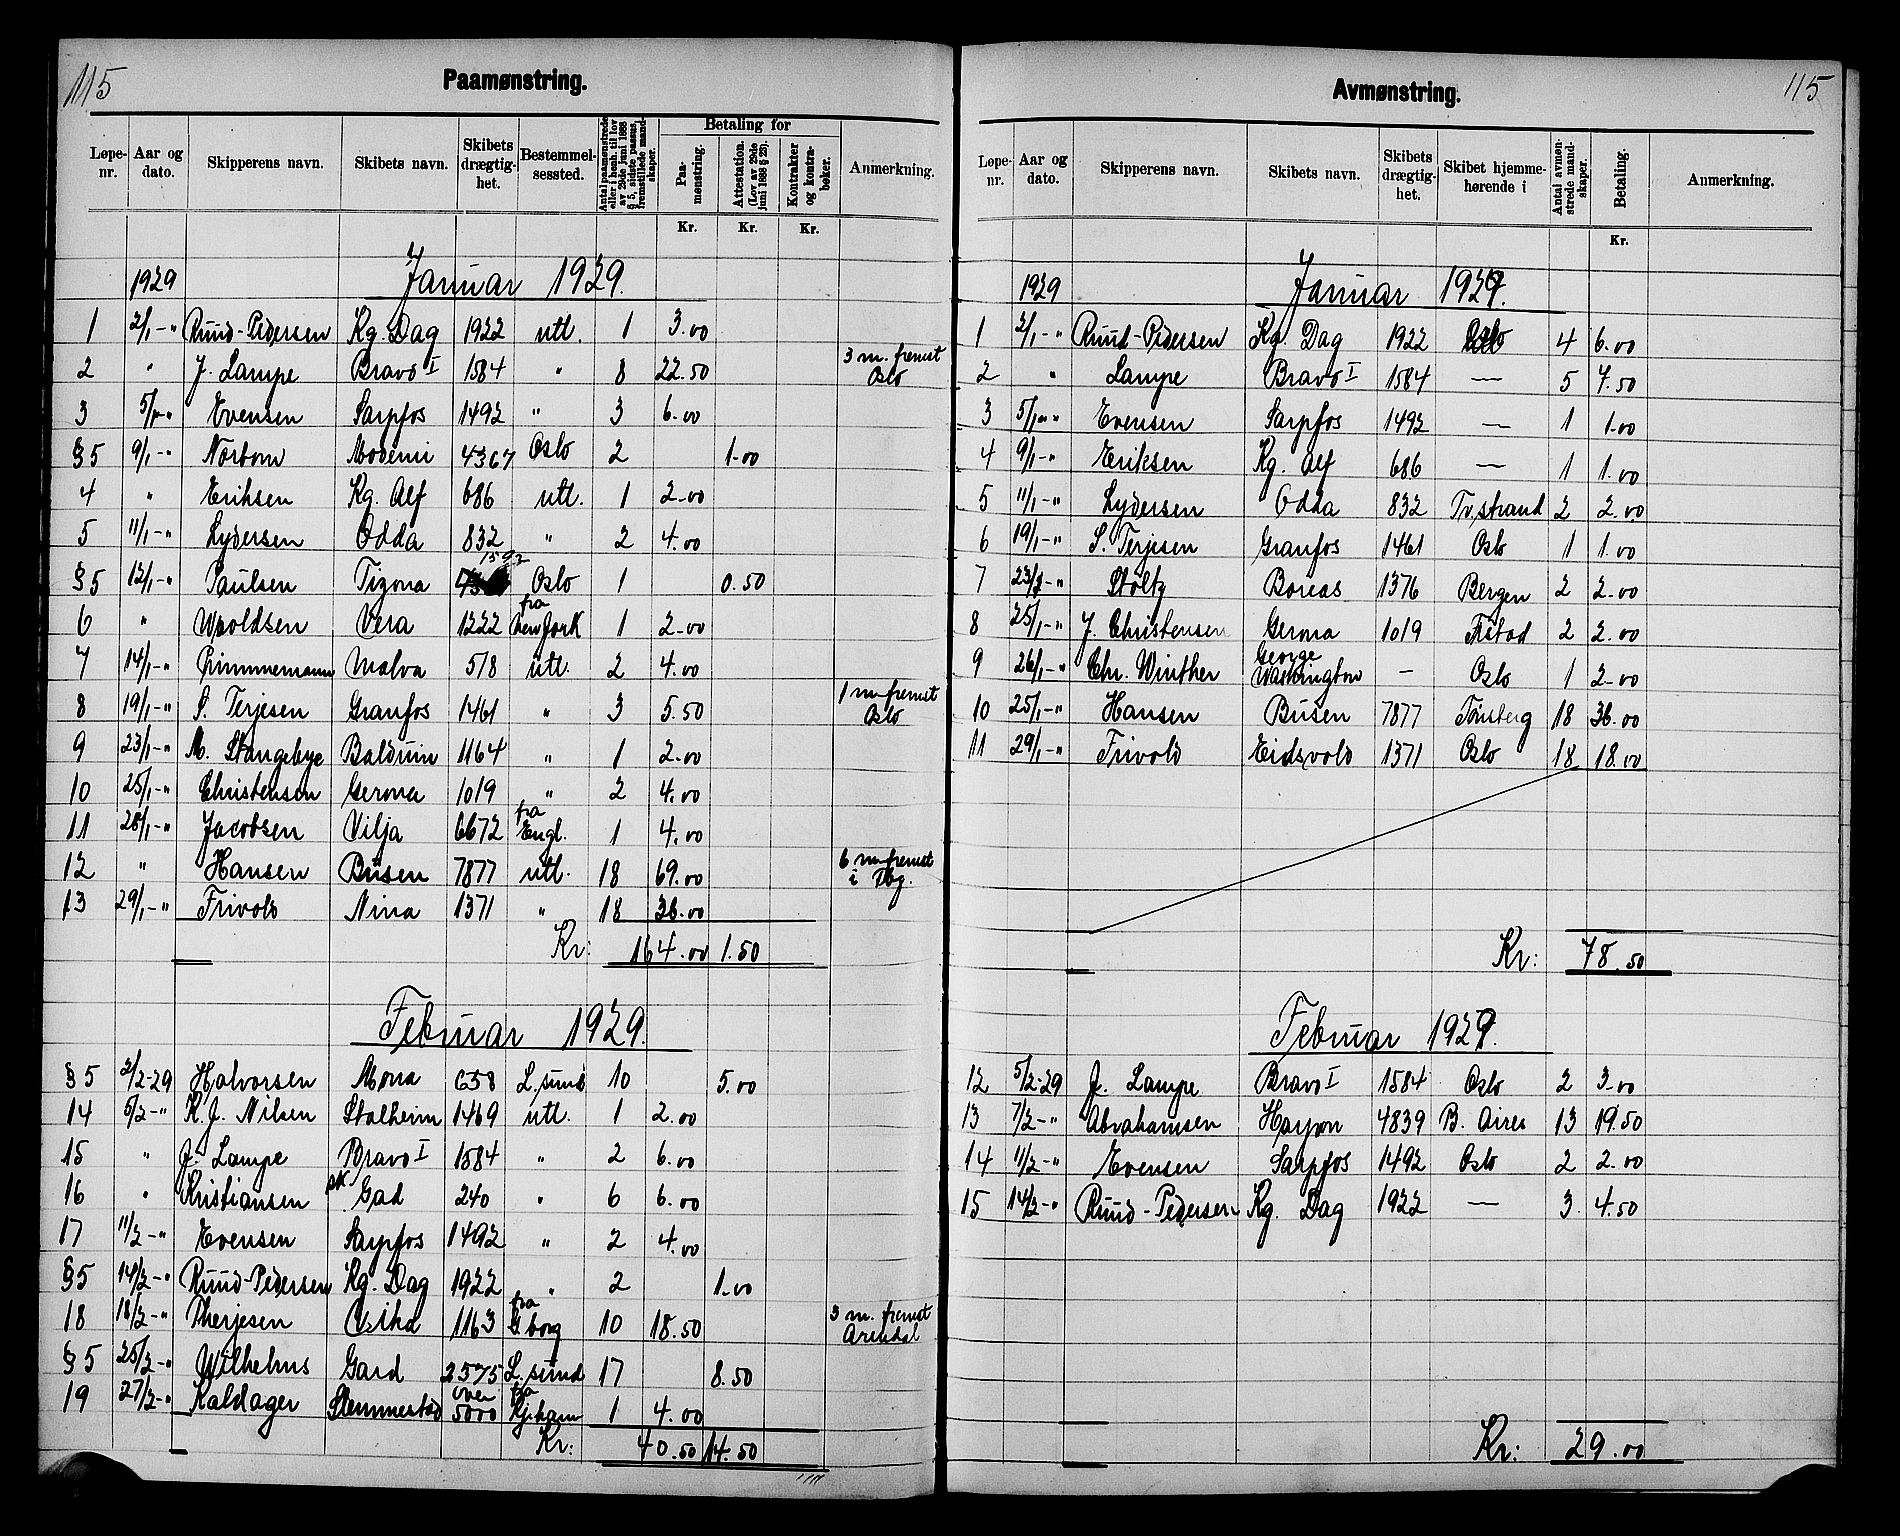 115
Paamønstring.
Løpe-nr. Aar og dato. Skipperens navn. Skibets navn. Skibets drægtig-het. Bestemmel-sessted. Antal paamønstrede eller i henh. til lov av 29de juni 1888 § 5, sidste passus, fremstillede mand-skaper. Betaling for Paa-mønstring. Attestation. (Lov av 29de juni 1888 § 23). Kontrakter og kontra-bøker. Anmerkning.
Kr. Kr. Kr.
1929 Januar 1929.
1 2/1-" Ruud-Pedersen Kg. Dag 1922 utl. 1 3.00
2 " J. Lampe Bravo I 1584 " 8 22.50 3 m. fremst Oslo
3 5/1-" Evensen Sarpfos 1492 " 3 6.00
§5 9/1-" Norbom Modemi 4367 Oslo 2 1.00
4 " Eriksen Kg. Alf 686 utl. 1 2.00
5 11/1-" Lydersen Odda 832 " 2 4.00
§5 12/1-" Paulsen Tizona 1592 Oslo 1 0.50
6 " Woldsen Vera 1222 fra New York 1 2.00
7 14/1-" Malva 578 utl. 2 4.00
8 19/1-" S. Terjesen Granfos 1461 " 3 5.50 1 m fremst Oslo
9 23/1-" M. Stangebye Balduin 1164 " 1 2.00
10 25/1-" Christensen Gerona 1019 " 2 4.00
11 28/1-" Jacobsen Vilja 6672 fra Engl. 1 4.00
12 " Hansen Busen 7877 utl. 18 69.00 6 m fremst i Tbg.
13 29/1-" Frivold Nina 1371 " 18 36.00
Kr: 164.00 1.50
Februar 1929.
§5 2/2-29 Halvorsen Mona 658 L.sund 10 5.00
14 5/2-" K. J. Nilsen Stalheim 1469 utl. 1 2.00
15 " J. Lampe Bravo I 1584 " 2 6.00
16 " Kristiansen sk Gad 240 " 6 6.00
17 11/2-" Evensen Sarpfos 1492 " 2 4.00
§5 14/2-" Ruud-Pedersen Kg. Dag 1922 " 2 1.00
18 18/2-" Therjesen 1163 fra G.borg 10 18.50 3 m. fremst Arendal
§5 25/2-" Wilhelms Gard 2575 L.sund 17 8.50
19 27/2-" Kaldager Slemmestad over 5000 fra Kj.havn 1 4.00
Kr: 40.50 14.50
115
Avmønstring.
Løpe-nr. Aar og dato. Skipperens navn. Skibets navn. Skibets drægtig-het. Skibet hjemme-hørende i Antal avmøn-strede mand-skaper. Betaling. Anmerkning.
Kr.
1929 Januar 1929.
1 2/1-" Ruud-Pedersen Kg. Dag 1922 Oslo 4 6.00
2 " Lampe Bravo I 1584 — 5 7.50
3 5/1-" Evensen Sarpfos 1492 — 1 1.00
4 9/1-" Eriksen Kg. Alf 686 — 1 1.00
5 11/1-" Lydersen Odda 832 Tv.strand 2 2.00
6 19/1-" S. Terjesen Granfos 1461 Oslo 1 1.00
7 23/1-" Stoltz Boreas 1376 Bergen 2 2.00
8 25/1-" J. Christensen Gerona 1019 F.stad 2 2.00
9 26/1-" Chr. Winther George Washington — Oslo 1 2.00
10 25/1-" Hansen Busen 7877 Tønsberg 18 36.00
11 29/1-" Frivold Eidsvold 1371 Oslo 18 18.00
Kr: 78.50
Februar 1929.
12 5/2-29 J. Lampe Bravo I 1584 Oslo 2 3.00
13 7/2-" Abrahamsen Haypon 4839 B. Aires 13 19.50
14 11/2-" Evensen Sarpfos 1492 Oslo 2 2.00
15 14/2-" Ruud-Pedersen Kg. Dag 1922 — 3 4.50
Kr: 29.00